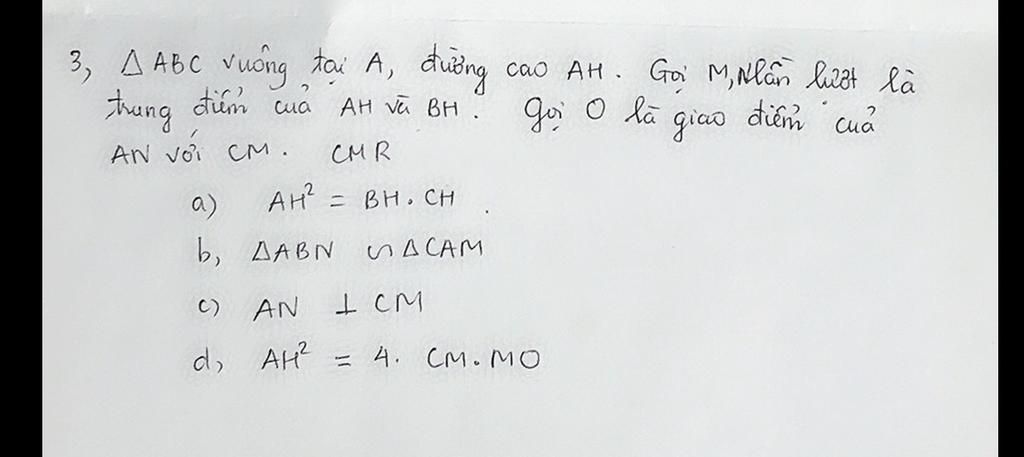 3, △ ABC vuông tại A, đường cao AH. Gọi M,N lần lượt là
trung điểm của AH và BH. Gọi O là giao điểm của
AN với CM. CMR
a) AH² = BH.CH.
b, △ABN ∽ △CAM
c) AN ⊥ CM
d, AH² = 4. CM.MO